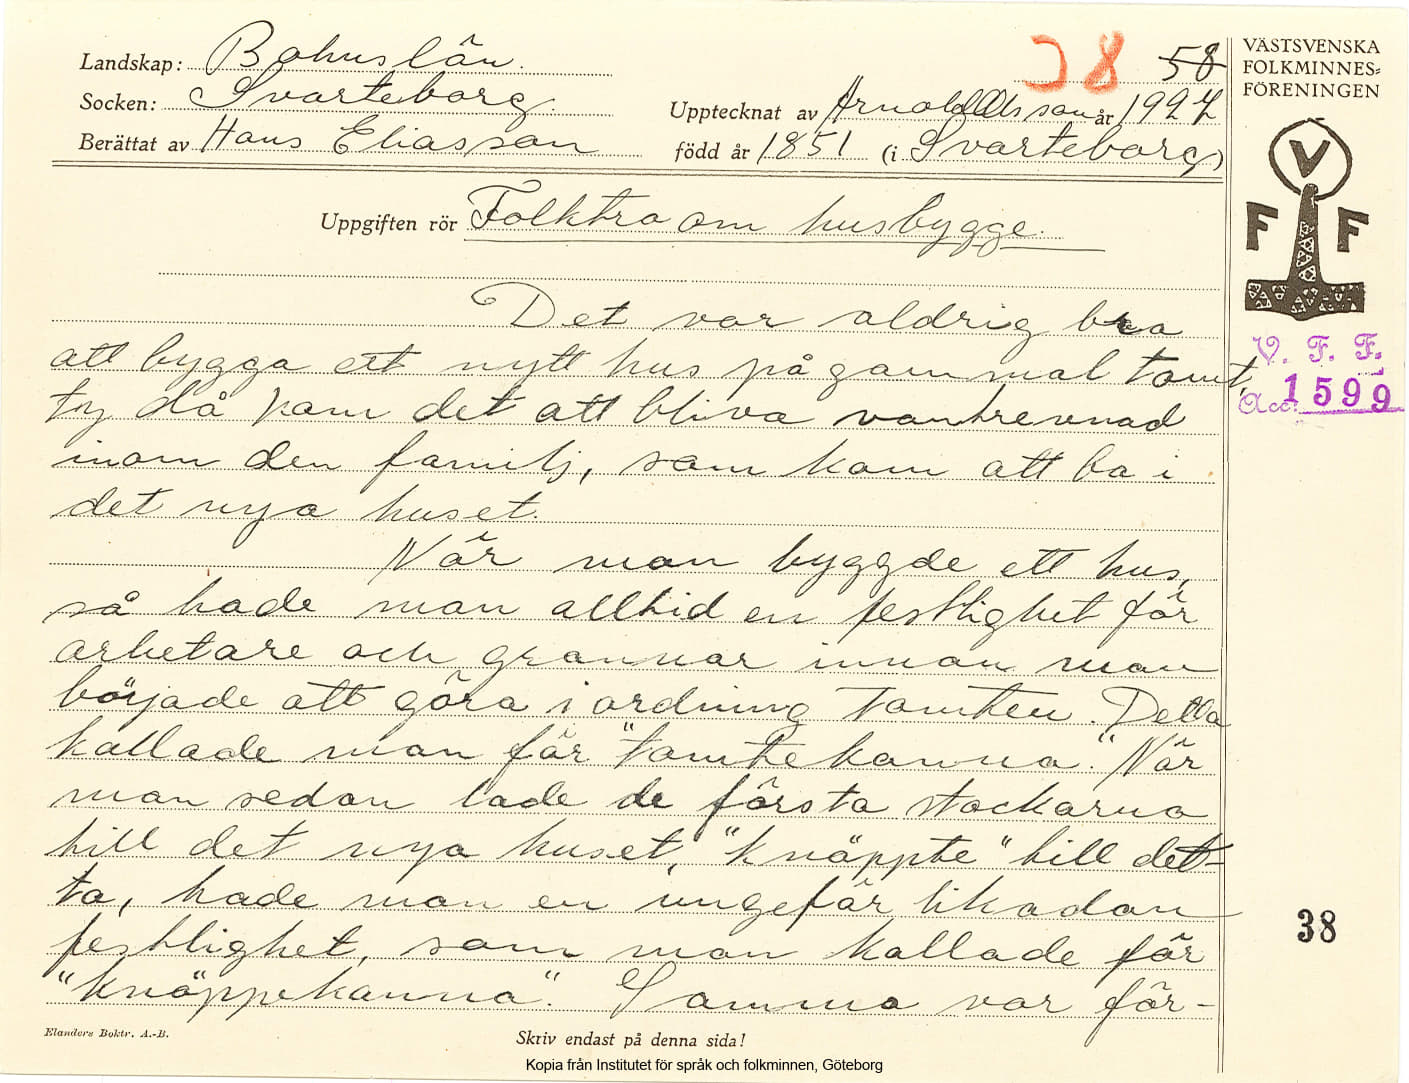 Landskap: Bohuslän.
Socken: Svarteborg.
Berättat av Hans Eliasson
38 58
Upptecknat av Arnold Olsson år 1927
född år 1851 (i Svarteborg)
VÄSTSVENSKA
FOLKMINNES-
FÖRENINGEN
V
F F
V. F. F.
Acc: 1599
Uppgiften rör Folktro om husbygge.
Det var aldrig bra
att bygga ett nytt hus på gammal tomt,
ty då kom det att bliva vantrevnad
inom den familj, som kom att bo i
det nya huset.
När man byggde ett hus,
så hade man alltid en festlighet för
arbetare och grannar innan man
började att göra i ordning tomten. Detta
kallade man för "tomtekanna". När
man sedan lade de första stockarna
till det nya huset, "knäppte" till det-
ta, hade man en ungefär likadan
festlighet, som man kallade för
"knäppekanna". Samma var för-
38
Elanders Boktr. A.-B.
Skriv endast på denna sida!
Kopia från Institutet för språk och folkminnen, Göteborg